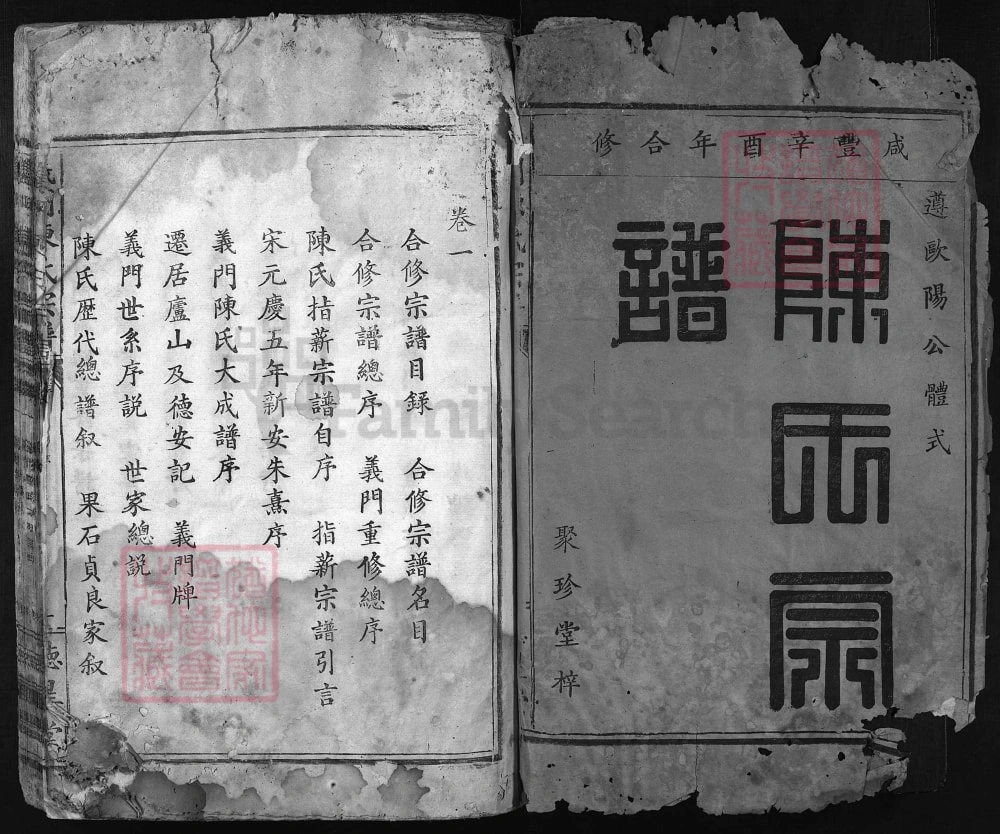 咸豐辛酉年合修
遵歐陽公體式
陳氏宗
譜
聚珍堂梓
卷一
合修宗譜目録 合修宗譜名目
合修宗譜總序 義門重修總序
陳氏指薪宗譜自序 指薪宗譜引言
宋元慶五年新安朱熹序
義門陳氏大成譜序
遷居廬山及德安記 義門牌
義門世系序說 世家總說
陳氏歷代總譜叙 果石貞良家叙
FamilySearch